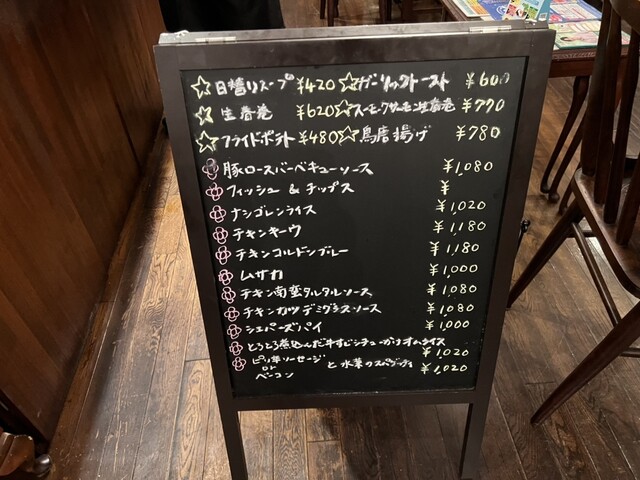 ☆日替りスープ ¥420 ☆ガーリックトースト ¥600
☆生春巻 ¥620 ☆スモークサーモン生春巻 ¥770
☆フライドポテト ¥480 ☆鳥唐揚げ ¥780
豚ロースバーベキューソース ¥1,080
フィッシュ & チップス ¥
ナシゴレンライス ¥1,020
チキンキーウ ¥1,180
チキンコルドンブルー ¥1,180
ムサカ ¥1,000
チキン南蛮タルタルソース ¥1,080
チキンカツデミグラスソース ¥1,080
シェパーズパイ ¥1,000
とろとろ煮込んだ牛すじシチューかけオムライス ¥1,020
ソーセージ
or
ベーコン と水菜のスパゲッティ ¥1,020